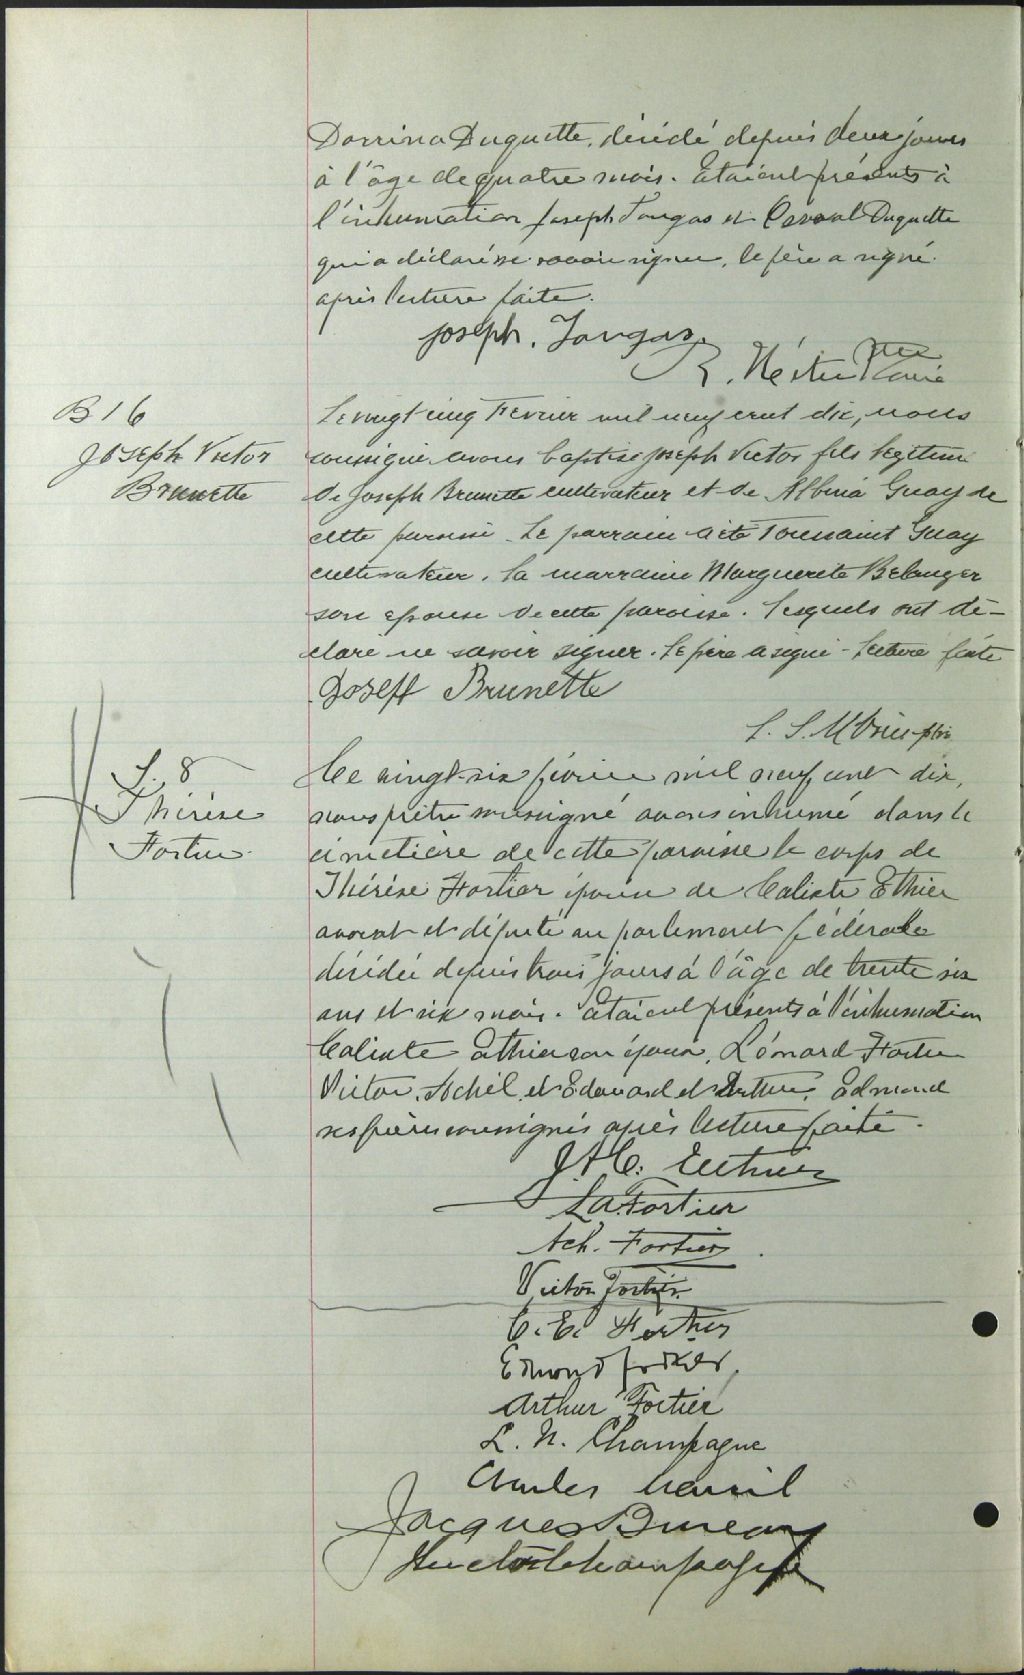 Dorrina Duquette, décédé depuis deux jours
à l'âge de quatre mois. Etaient présents à
l'inhumation Joseph Tongas et Duquette
qui a déclaré ne savoir signer, le père a signé
après lecture faite.
Joseph. Tongas
R. Ptre Curé
B 16
Joseph Victor
Brunette
Le vingt cinq Fevrier mil neuf cent dix, nous
soussigné avons baptisé Joseph Victor fils legitime
de Joseph Brunette cultivateur et de Albina Guay de
cette paroisse. Le parrain a été Toussaint Guay
cultivateur. la marraine Marguerite Belanger
son epouse de cette paroisse. lesquels ont dé-
claré ne savoir signer. Le père a signé - Lecture faite
Joseff Brunette
S. 8
Thérèse
Fortier
Le vingt-six février mil neuf cent dix,
nous prêtre soussigné avons inhumé dans le
cimetière de cette paroisse le corps de
Thérèse Fortier épouse de Calixte Ethier
avocat et député au parlement fédérale
décédée depuis trois jours à l'âge de trente six
ans et six mois. Etaient présents à l'inhumation
Calixte Ethier son époux, Léonard Fortier
Victor, Achil, et Edouard et Arthur, Edmond
ses frères soussignés après lecture faite.
J.A.C. Ethier
L.A. Fortier
Ach. Fortier
Victor Fortier
C. E. Fortier
Edmond Fortier
Arthur Fortier
L. N. Champagne
Charles Marcil
Jacques Bureau
Hector Champagne